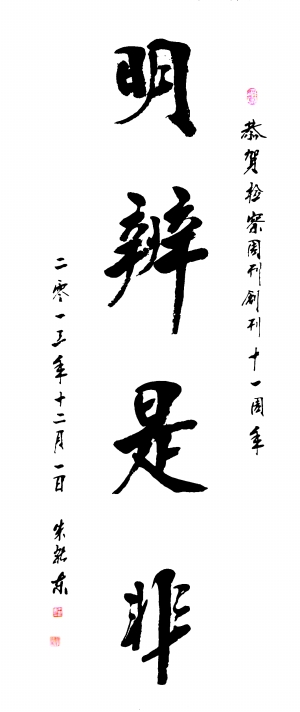 恭贺检察周刊创刊十一周年
明辨是非
二零一三年十二月一日